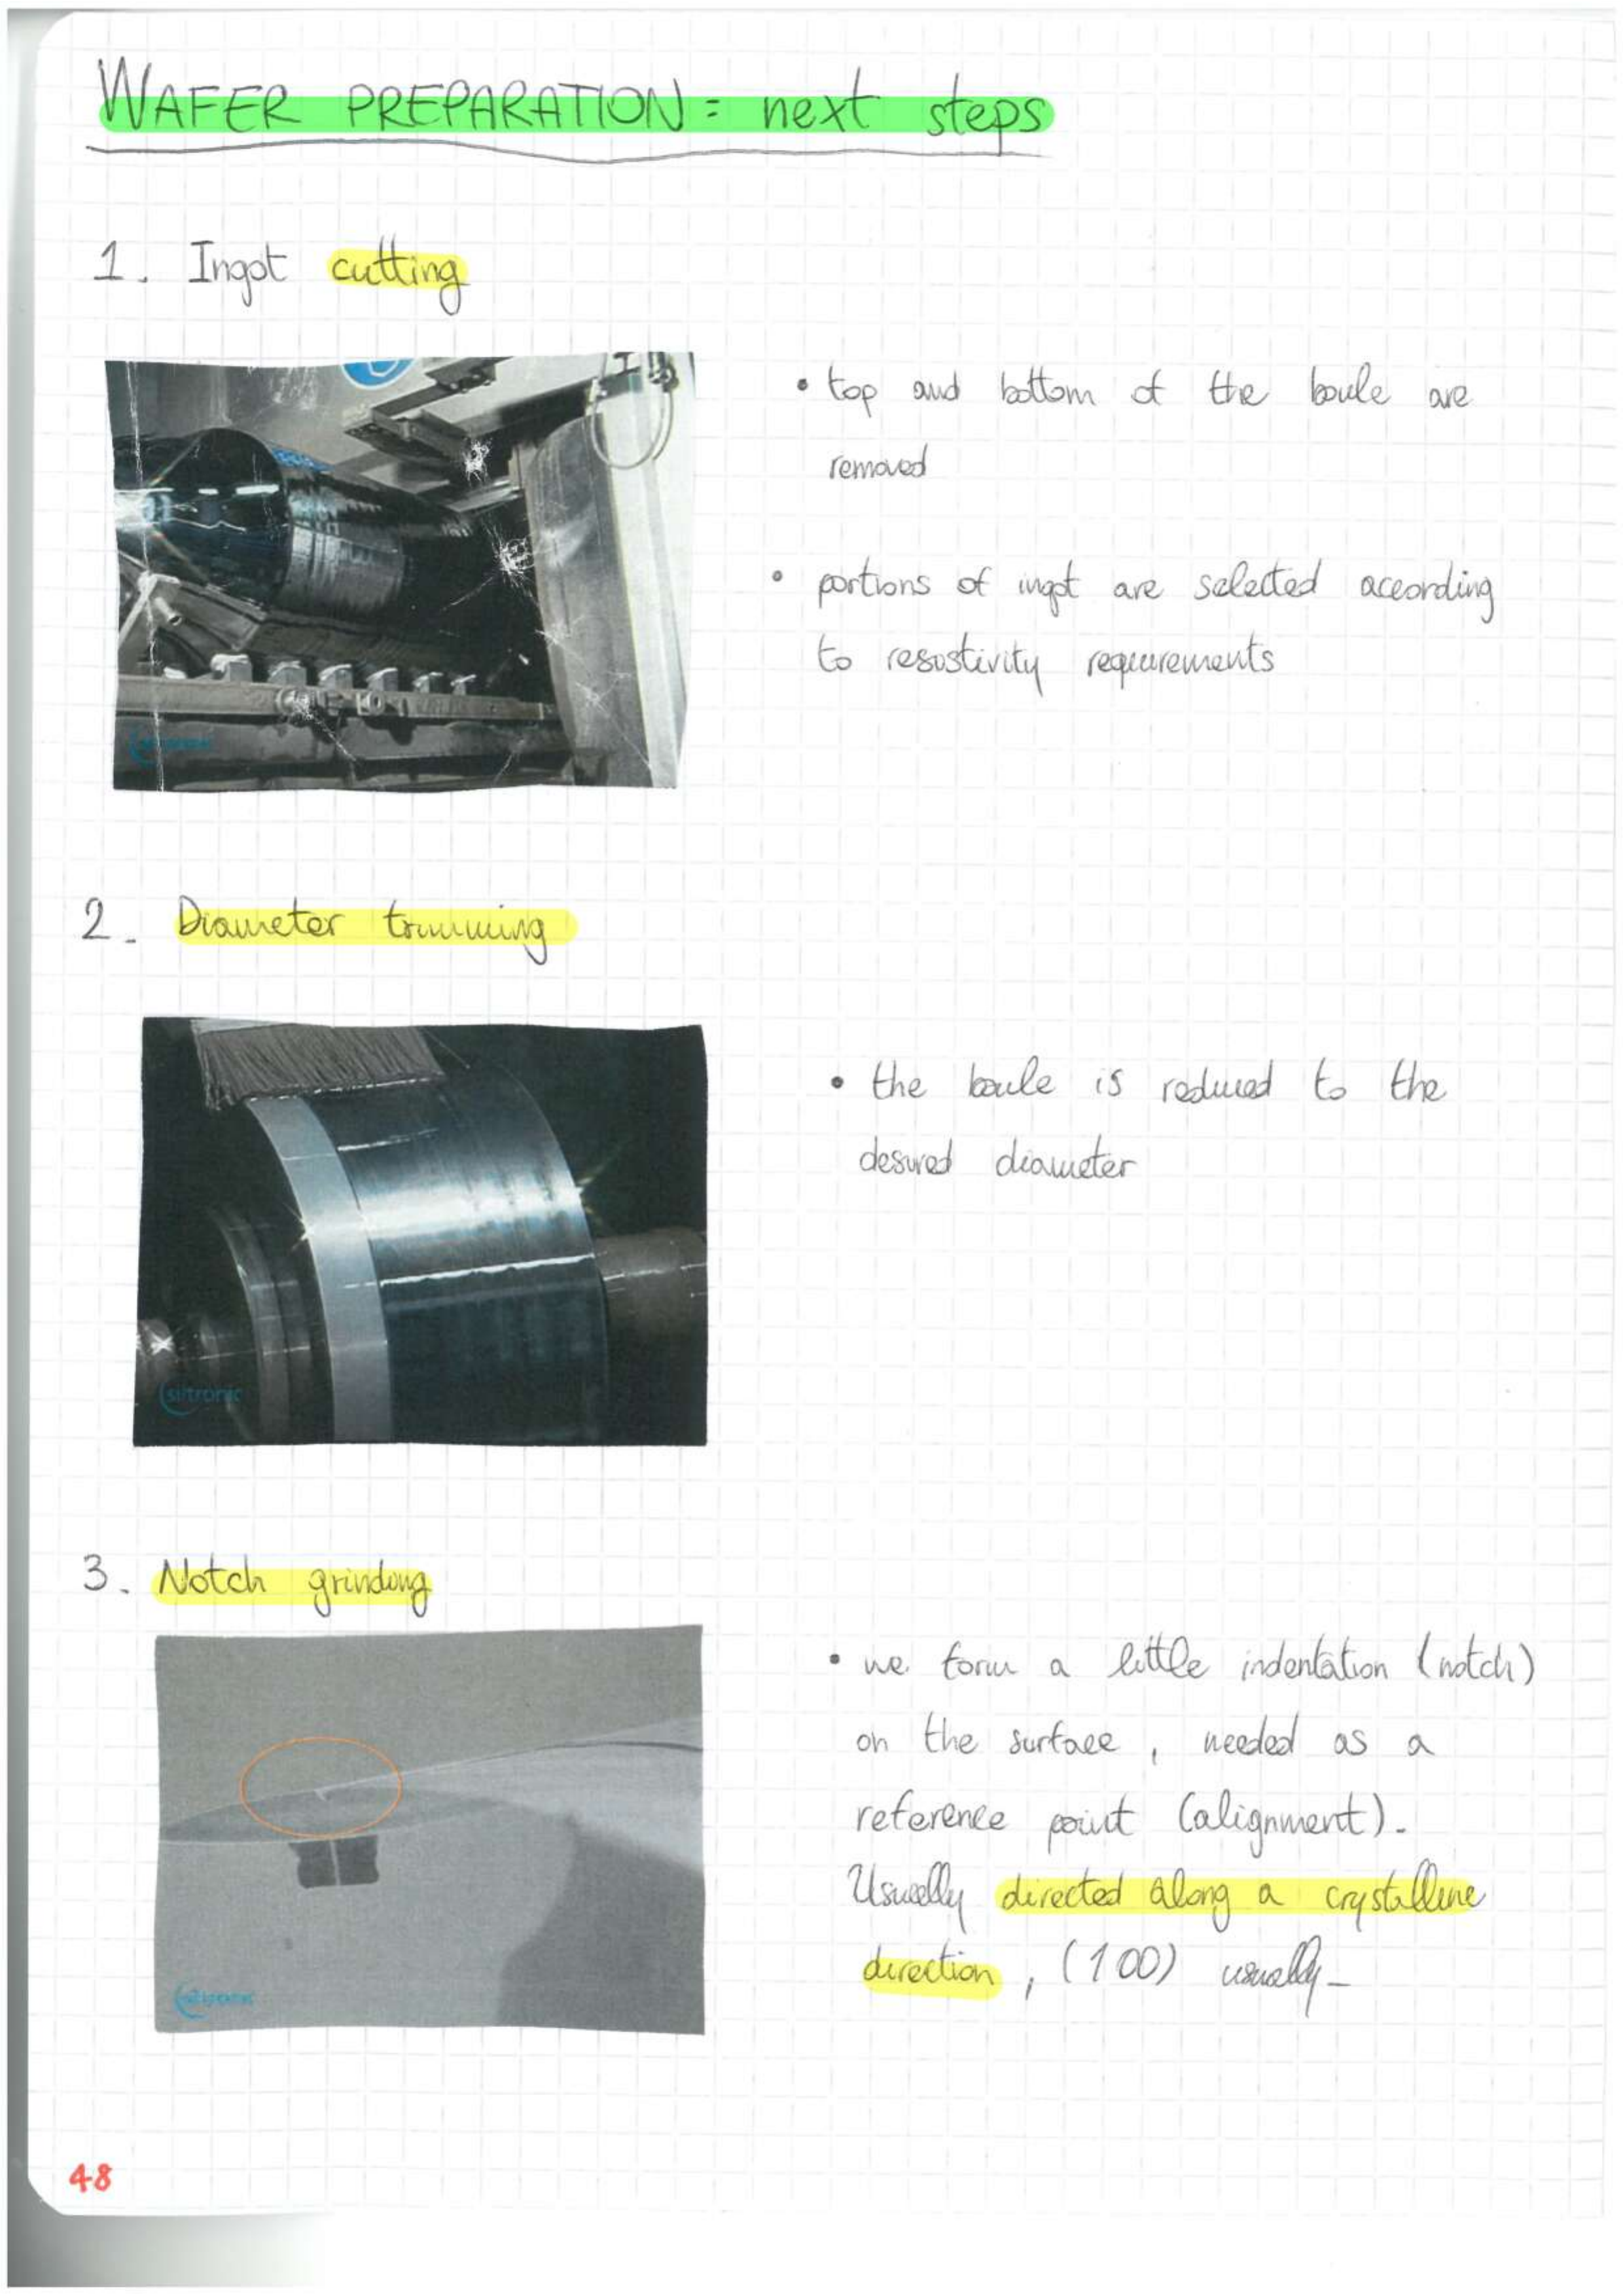 WAFER PREPARATION: next steps
1. Ingot cutting
• top and bottom of the boule are
removed
• portions of ingot are selected according
to resistivity requirements
2. Diameter trimming
• the boule is reduced to the
desired diameter
siltronic
3. Notch grinding
• we form a little indentation (notch)
on the surface, needed as a
reference point (alignment).
Usually directed along a crystalline
direction, (100) usually.
48